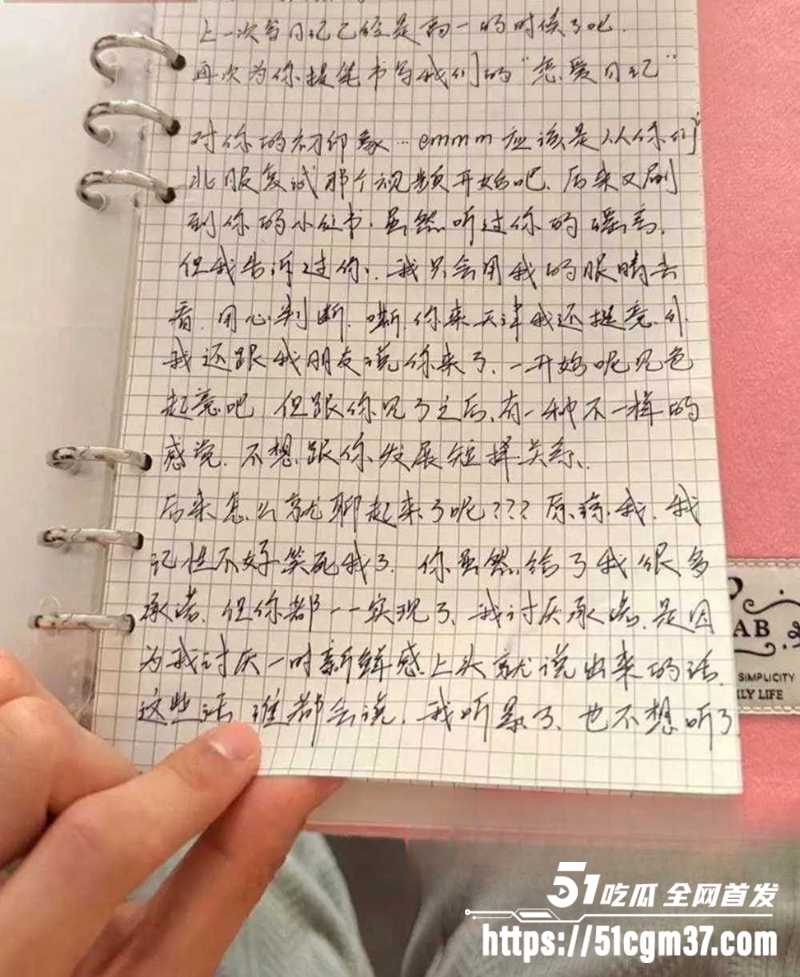 上一次写日记已经是高一的时候了吧.
再次为你提笔书写我们的“恋爱日记”
对你的初印象…emmm应该是从你们
北服复试那个视频开始吧、后来又刷
到你的小红书.虽然听过你的
但我告诉过你、我只会用我的眼睛去
看.用心判断.嘶.你来天津我还挺意外
我还跟我朋友说你来了、一开始呢见色
起意吧 但跟你见了之后,有一种不一样的
感觉.不想跟你发展短择关系、
后来怎么就聊起来了呢???原谅我.我
记性不好笑死我了.你虽然给了我很多
承诺.但你都一一实现了、我讨厌承诺.是因
为我讨厌一时新鲜感上头就说出来的话.
这些话谁都会说.我听累了、也不想听了
AB
SIMPLICITY
LY LIFE
51吃瓜 全网首发
https://51cgm37.com